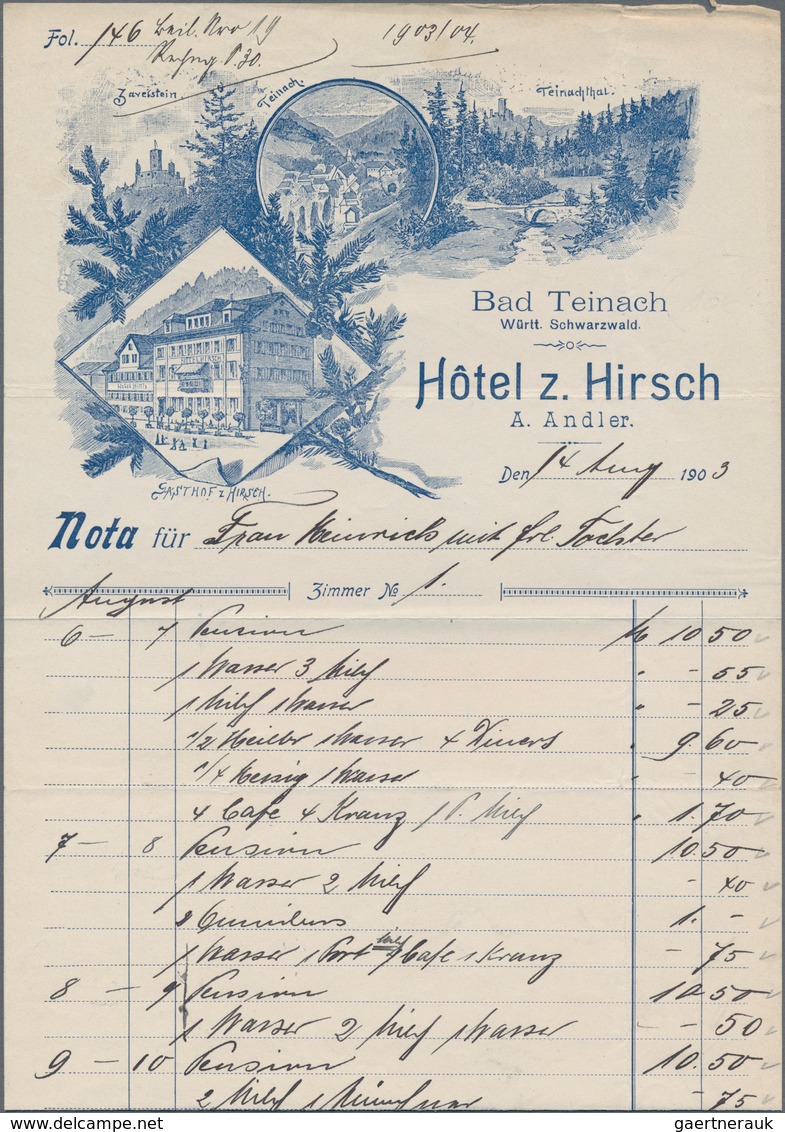 Fol. 146 Beil. Nro 19 1903/04.
Rechng S. 30.
Zavelstein
Teinach.
Teinachthal.
Bad Teinach
Württ. Schwarzwald.
Hôtel z. Hirsch
A. Andler.
HOTEL HIRSCH
GASTHOF z. HIRSCH.
Den 14 Aug 1903
Nota für Frau Heinrich mit frl. Tochter
Zimmer No 1.
August
6 – 7 Pension M 10.50
1 Wasser 3 Milch " - 55
1 Milch 1 Wasser " - 25
1/2 Heilbr 1 Wasser 4 Diners " 9.60
1/4 1 Wasser " - 40
4 Cafe 4 Kranz 1 P. Milch " 1.70
7 – 8 Pension 10.50
1 Wasser 2 Milch - 40
2 1. -
1 Wasser 1 Port Milch Cafe 1 Kranz - 75
8 – 9 Pension 10.50
1 Wasser 2 Milch 1 Wasser - 50
9 – 10 Pension 10.50
2 Milch 1 Münchner - 75
gaertnerauk